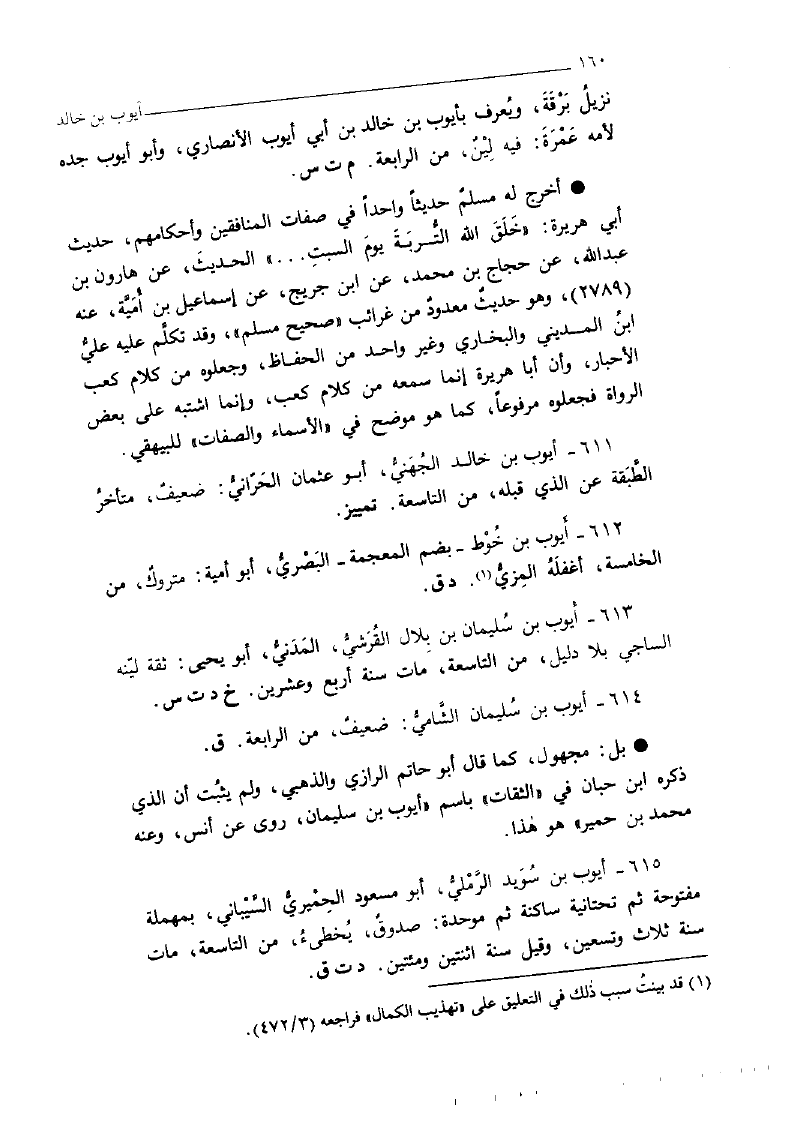 ١٦٠
أيوب بن خالد
نزيلُ بَرْقَةَ، ويُعرف بأيوب بن خالد بن أبي أيوب الأنصاري، وأبو أيوب جده
لأمه عَمْرَةَ: فيه لِيْنٌ، من الرابعة. م ت س.
● أخرج له مسلمٌ حديثاً واحداً في صفات المنافقين وأحكامهم، حديث
أبي هريرة: «خَلَقَ الله التُّربَةَ يومَ السبتِ...» الحديثَ، عن هارون بن
عبدالله، عن حجاج بن محمد، عن ابن جريج، عن إسماعيل بن أُمَيَّة، عنه
(٢٧٨٩)، وهو حديثٌ معدودٌ من غرائب «صحيح مسلم»، وقد تكلَّم عليه عليُّ
ابنُ المديني والبخاري وغير واحد من الحفاظ، وجعلوه من كلام كعب
الأحبار، وأن أبا هريرة إنما سمعه من كلام كعب، وإنما اشتبه على بعض
الرواة فجعلوه مرفوعاً، كما هو موضح في «الأسماء والصفات» للبيهقي.
٦١١- أيوب بن خالد الجُهَنيُّ، أبو عثمان الحَرّانيُّ: ضعيفٌ، متأخرُ
الطَّبَقة عن الذي قبله، من التاسعة. تمييز.
٦١٢- أَيوب بن خُوْط - بضم المعجمة - البَصْريُّ، أبو أمية: متروكٌ، من
الخامسة، أغفلَهُ المِزيُّ(١). د ق.
٦١٣- أيوب بن سُليمان بن بِلال القُرَشيُّ، المَدَنيُّ، أبو يحيى: ثقة ليّنه
الساجي بلا دليل، من التاسعة، مات سنة أربع وعشرين. خ د ت س.
٦١٤- أيوب بن سُليمان الشَّاميُّ: ضعيفٌ، من الرابعة. ق.
● بل: مجهول، كما قال أبو حاتم الرازي والذهبي، ولم يثبُت أن الذي
ذكره ابن حبان في «الثقات» باسم «أيوب بن سليمان، روى عن أنس، وعنه
محمد بن حمير» هو هٰذا.
٦١٥- أيوب بن سُوَيد الرَّمْليُّ، أبو مسعود الحِمْيريُّ السَّيْباني، بمهملة
مفتوحة ثم تحتانية ساكنة ثم موحدة: صدوقٌ، يُخطىءُ، من التاسعة، مات
سنة ثلاث وتسعين، وقيل سنة اثنتين ومئتين. د ت ق.
(١) قد بينتُ سبب ذٰلك في التعليق على «تهذيب الكمال» فراجعه (٤٧٢/٣).